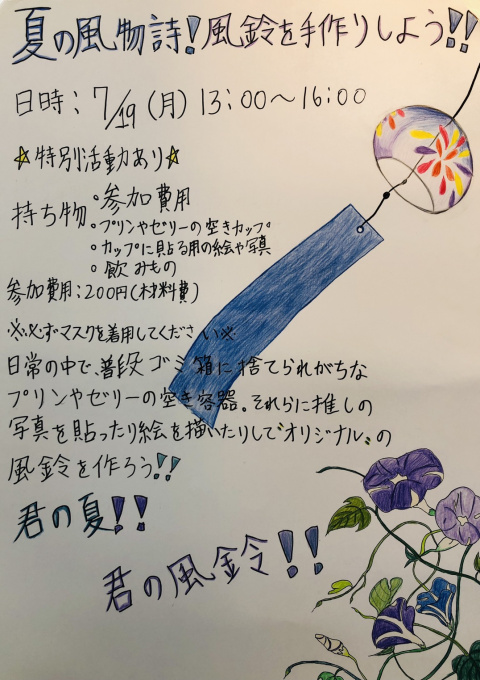 夏の風物詩!風鈴を手作りしよう!!
日時:7/19(月)13:00〜16:00
☆特別活動あり☆
持ち物
・参加費用
・プリンやゼリーの空きカップ
・カップに貼る用の絵や写真
・飲みもの
参加費用:200円(材料費)
※必ずマスクを着用してください※
日常の中で、普段ゴミ箱に捨てられがちな
プリンやゼリーの空き容器。それらに推しの
写真を貼ったり絵を描いたりして〝オリジナル〟の
風鈴を作ろう!!
君の夏!!
君の風鈴!!